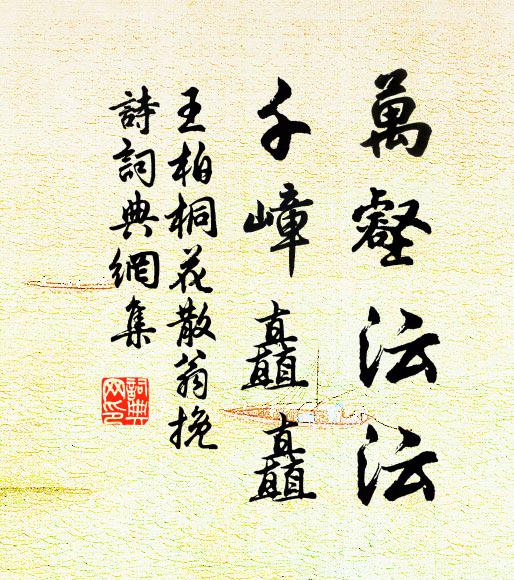 萬壑沄沄
千嶂矗矗
王柏桐花散翁挽
詩詞典網集
詞典
网印